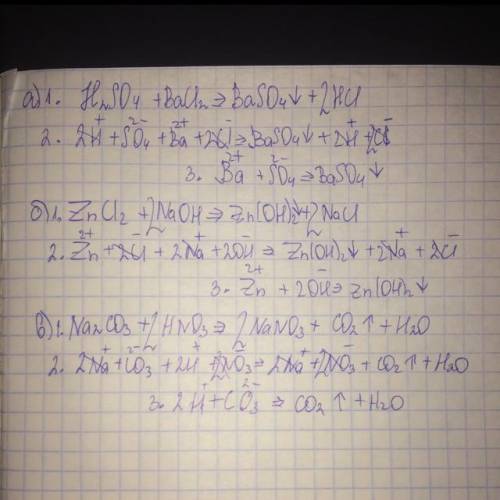 а) 1. H₂SO₄ + BaCl₂ ⇒ BaSO₄↓ + 2HCl
2. 2H⁺ + SO₄²⁻ + Ba²⁺ + 2Cl⁻ ⇒ BaSO₄↓ + 2H⁺ + 2Cl⁻
3. Ba²⁺ + SO₄²⁻ ⇒ BaSO₄↓
б) 1. ZnCl₂ + 2NaOH ⇒ Zn(OH)₂↓ + 2NaCl
2. Zn²⁺ + 2Cl⁻ + 2Na⁺ + 2OH⁻ ⇒ Zn(OH)₂↓ + 2Na⁺ + 2Cl⁻
3. Zn²⁺ + 2OH⁻ ⇒ Zn(OH)₂↓
в) 1. Na₂CO₃ + 2HNO₃ ⇒ 2NaNO₃ + CO₂↑ + H₂O
2. 2Na⁺ + CO₃²⁻ + 2H⁺ + 2NO₃⁻ ⇒ 2Na⁺ + 2NO₃⁻ + CO₂↑ + H₂O
3. 2H⁺ + CO₃²⁻ ⇒ CO₂↑ + H₂O